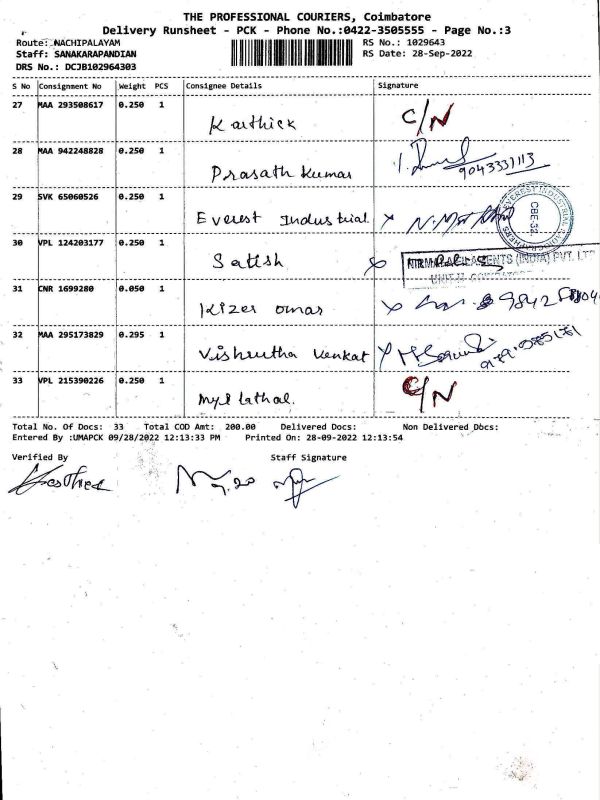 THE PROFESSIONAL COURIERS, Coimbatore
Delivery Runsheet - PCK - Phone No.:0422-3505555 - Page No.:3
Route: NACHIPALAYAM RS No.: 1029643
Staff: SANAKARAPANDIAN RS Date: 28-Sep-2022
DRS No.: DCJB102964303
S No Consignment No Weight PCS Consignee Details Signature
27 MAA 293508617 0.250 1
Karthick C/N
28 MAA 942248828 0.250 1
Prasath Kumar 9043331113
29 SVK 65060526 0.250 1
Everest Industrial
EVEREST INDUSTRIAL
CBE-32.
30 VPL 124203177 0.250 1
Satish
(INDIA) PVT. LTD
31 CNR 1699280 0.050 1
Kizer omar 9842
32 MAA 295173829 0.295 1
Vishrutha Venkat
33 VPL 215390226 0.250 1
Mylathal C/N
Total No. Of Docs: 33 Total COD Amt: 200.00 Delivered Docs: Non Delivered Docs:
Entered By :UMAPCK 09/28/2022 12:13:33 PM Printed On: 28-09-2022 12:13:54
Verified By Staff Signature